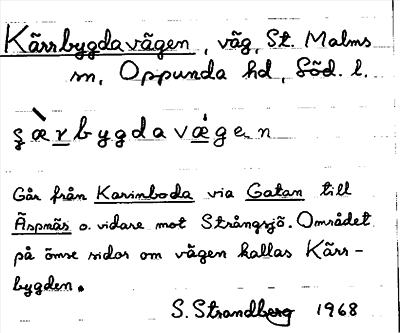 Kärrbygdavägen, väg, St. Malms
sn, Oppunda hd, Söd. l.
şæ̀rbygdavǽgen
Går från Karinboda via Gatan till
Äspnäs o. vidare mot Strångsjö. Området
på ömse sidor om vägen kallas Kärr-
bygden.
S. Strandberg 1968